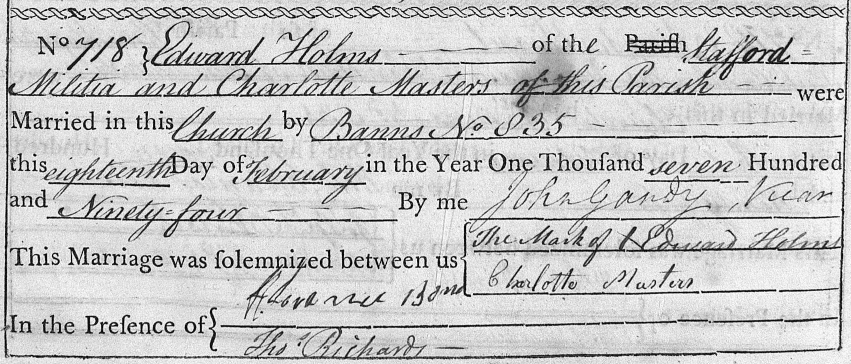 No 718 } Edward Holms — of the Pariſh Stafford
Militia and Charlotte Masters of this Parish — were
Married in this Church by Banns No 835
this eighteenth Day of February in the Year One Thouſand seven Hundred
and Ninety-four — By me John Gandy, Vicar
This Marriage was ſolemnized between us { The Mark of X Edward Holms
Charlotte Masters
In the Preſence of {
Thos Richards —